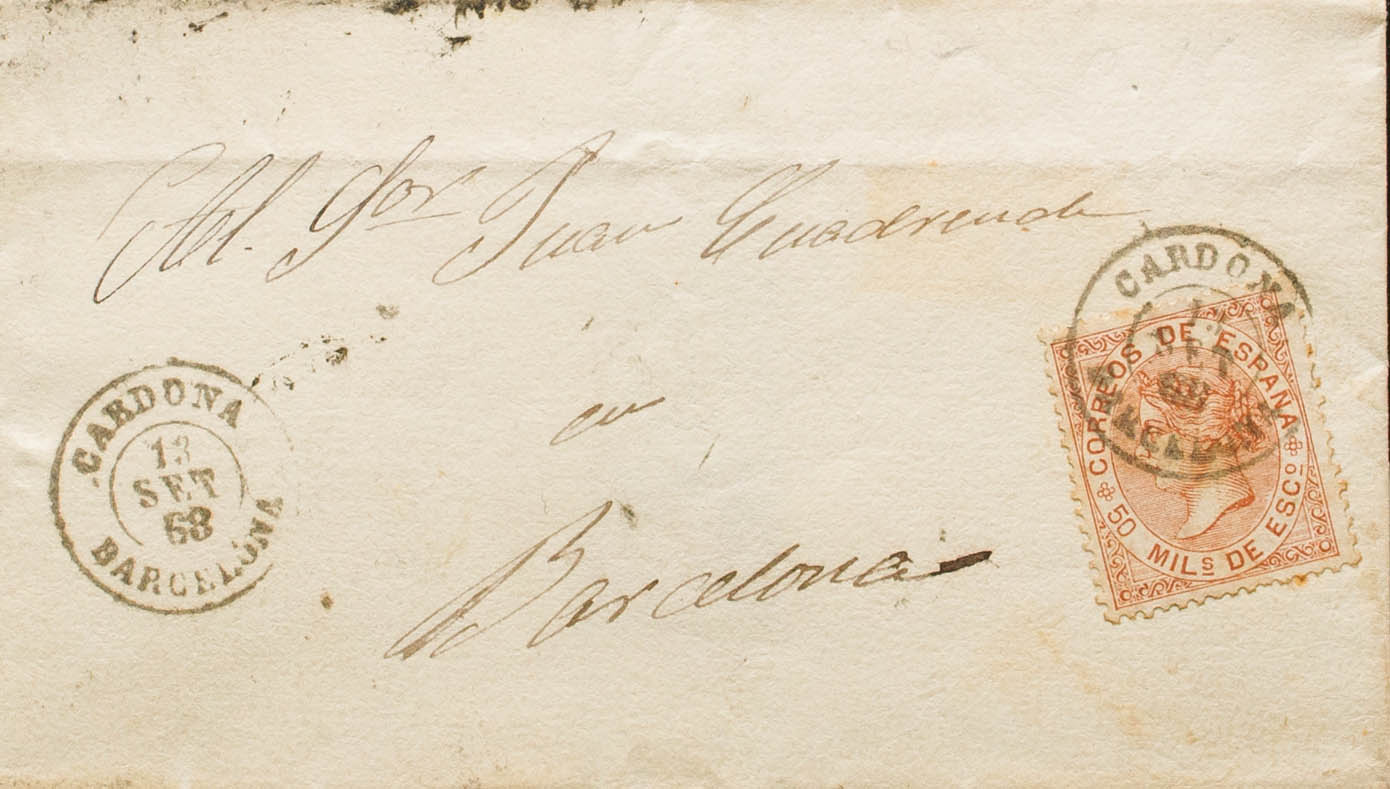 Al Sor Juan
en
Barcelona
CARDONA
13
SET
68
BARCELONA
CARDONA
SET
BARCELONA
CORREOS DE ESPAÑA
50 MILS DE ESCO